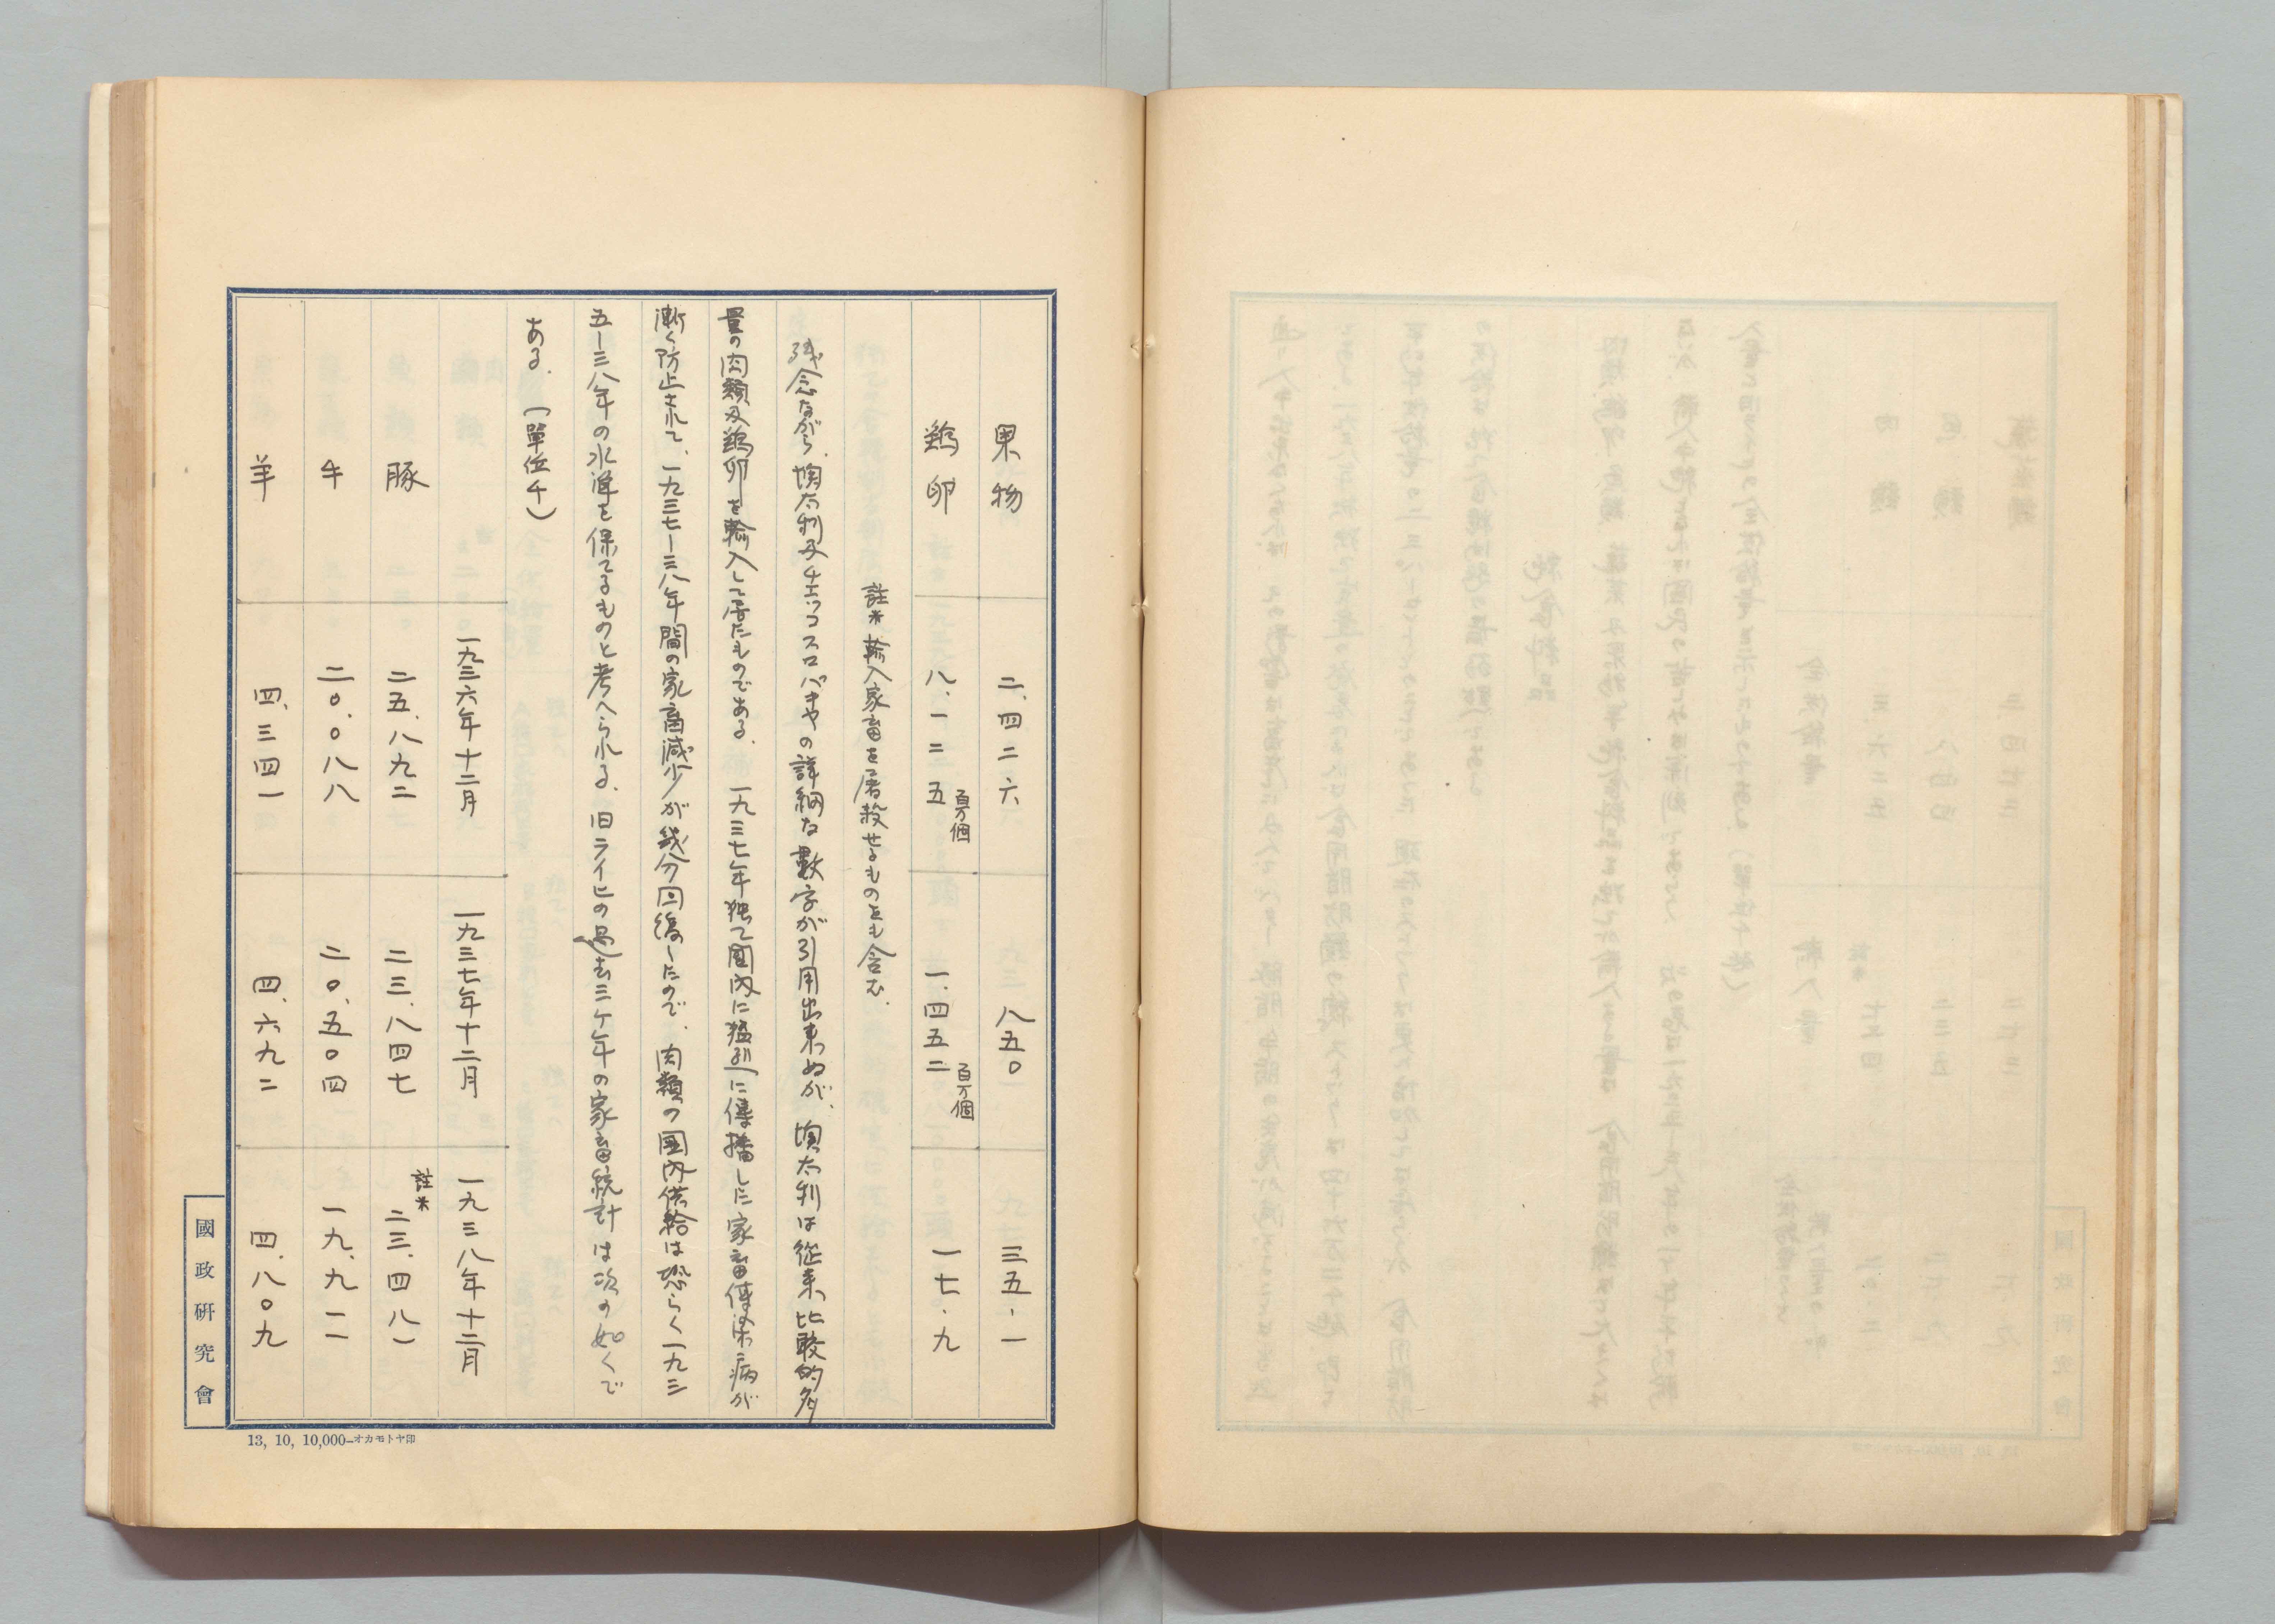 果物 二、四二六 八五〇 三五・一
鶏卵 八、一二五百万個 一、四五二百万個 一七・九
註* 輸入家畜を屠殺せるものをも含む.
残念ながら、墺太利及チエッコスロバキヤの詳細な数字が引用出来ぬが、墺太利は従来比較的多
量の肉類及鶏卵を輸入して居たものである. 一九三七年独乙國内に猛烈に傳播した家畜傳染病が
漸く防止されて、一九三七ー三八年間の家畜減少が幾分回復したので、肉類の国内供給は恐らく一九三
五ー三八年の水準を保てるものと考へられる. 旧ライヒの過去三ケ年の家畜統計は次の如くで
ある.(單位千)
一九三六年十二月 一九三七年十二月 一九三八年十二月
豚 二五、八九二 二三、八四七 註* 二三、四八一
牛 二〇、〇八八 二〇、五〇四 一九、九一一
羊 四、三四一 四、六九二 四、八〇九
國政研究會
13, 10, 10,000—オカモトヤ印